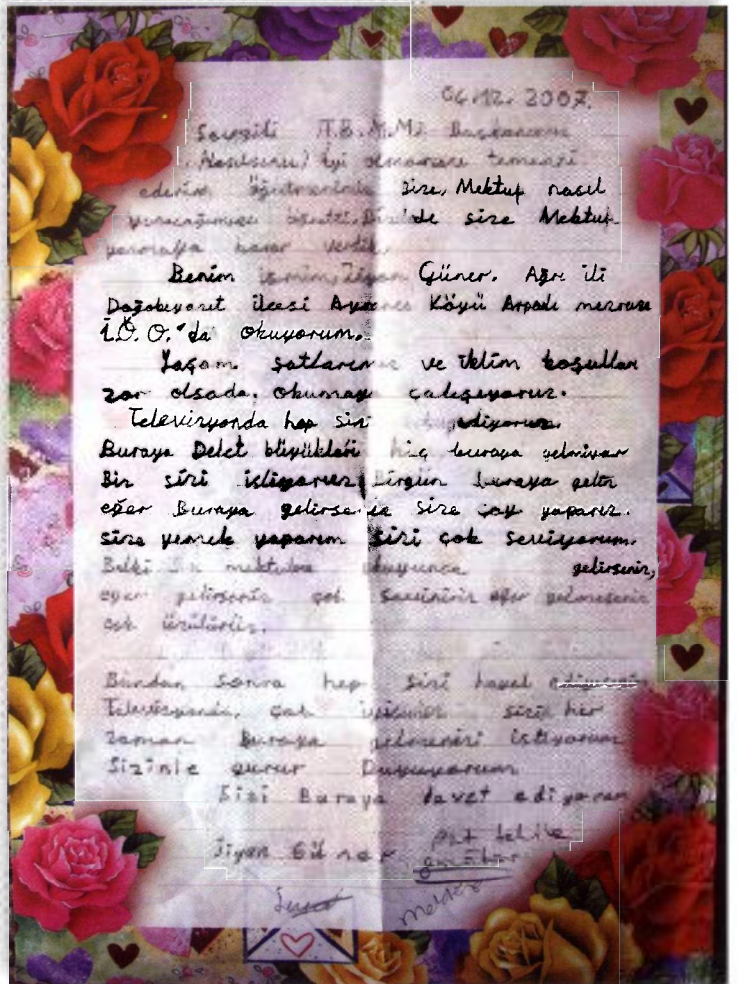 06.12.2007.
Sevgili T.B.M.M. Başkanımız
Nasılsınız, iyi olmanızı temenni
ederim öğretmenimiz size, Mektup nasıl
yazacağımızı öğretti. Bizde size Mektup
yazmaya karar verdik.
Benim ismim, Jiyan Güner. Ağrı ili
Doğobeyazıt ilcesi Köyü mezrası
İ.Ö.O.'da okuyorum.
Yaşam şatlarımız ve iklim koşulları
zor olsada, okumaya çalışıyoruz.
Televizyonda hep sizi
Buraya Delet büyükleri hiç buraya gelmiyor
Biz sizi istiyoruz Birgün buraya gelin
eğer Buraya gelirseniz size çay yaparız.
size yemek yaparım sizi çok seviyorum.
Belki bu mektubu okuyunca gelirseniz,
eğer gelirseniz çok seviniriz eğer gelmeseniz
çok üzülürüz.
Bundan sonra hep sizi hayal ediyoruz
Televizyonda, çok sizin her
zaman Buraya gelmenizi istiyorum
Sizinle gurur Duyuyorum
Sizi Buraya davet ediyorum
Jiyan Güner